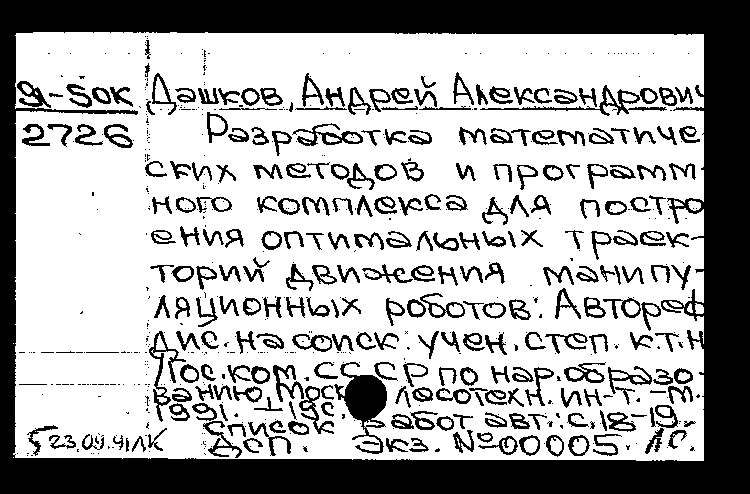 91-50к Дашков, Андрей Александрович
2726 Разработка математиче
ских методов и программ-
ного комплекса для постро
ения оптимальных траек-
торий движения манипу-
ляционных роботов: Автореф
дис. на соиск. учен. степ. к.т.н
/Гос. ком. СССР по нар. образо-
ванию, Моск лесотехн. ин-т. -М.
1991. - 19с.
список работ авт.: с.18-19.
23.09.91 ЛК ДСП. Экз. №00005. ЛС.